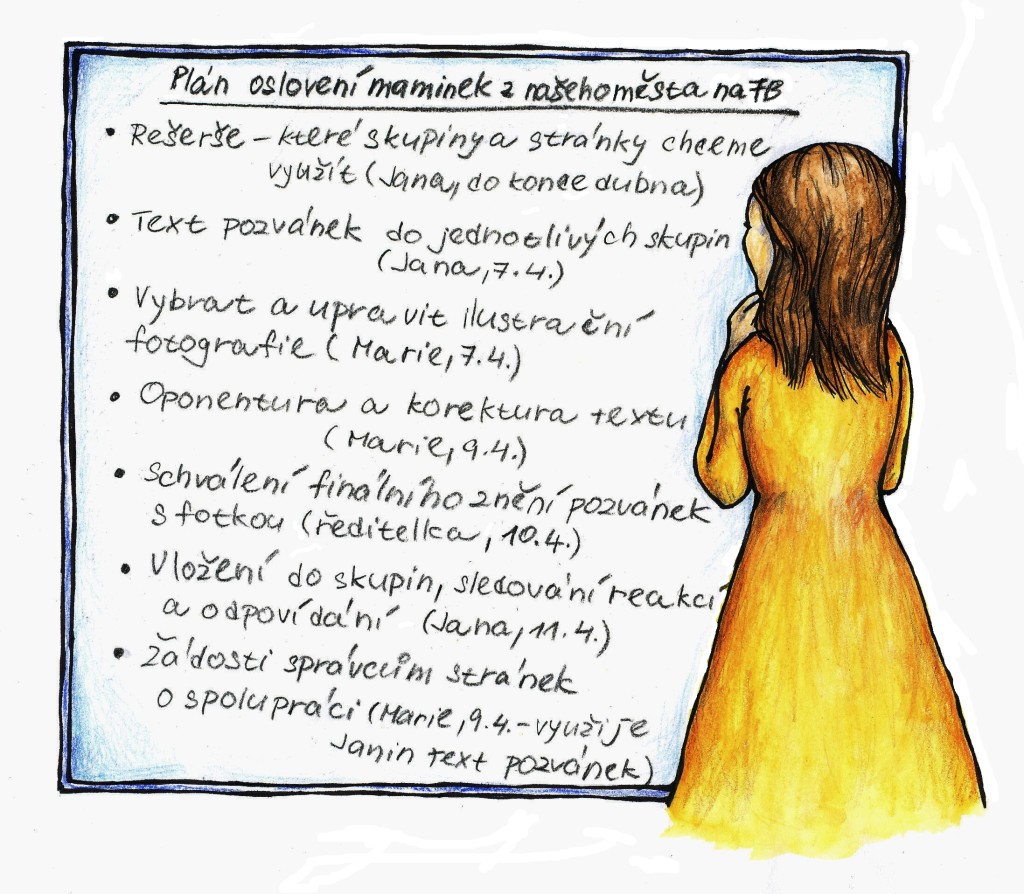 Plán oslovení maminek z našeho města na FB
• Rešerše – které skupiny a stránky chceme
využít (Jana, do konce dubna)
• Text pozvánek do jednotlivých skupin
(Jana, 7.4.)
• Vybrat a upravit ilustrační
fotografie (Marie, 7.4.)
• Oponentura a korektura textu
(Marie, 9.4.)
• Schválení finálního znění pozvánek
s fotkou (ředitelka, 10.4.)
• Vložení do skupin, sledování reakcí
a odpovídání (Jana, 11.4.)
• Žádosti správcům stránek
o spolupráci (Marie, 9.4. – využije
Janin text pozvánek)